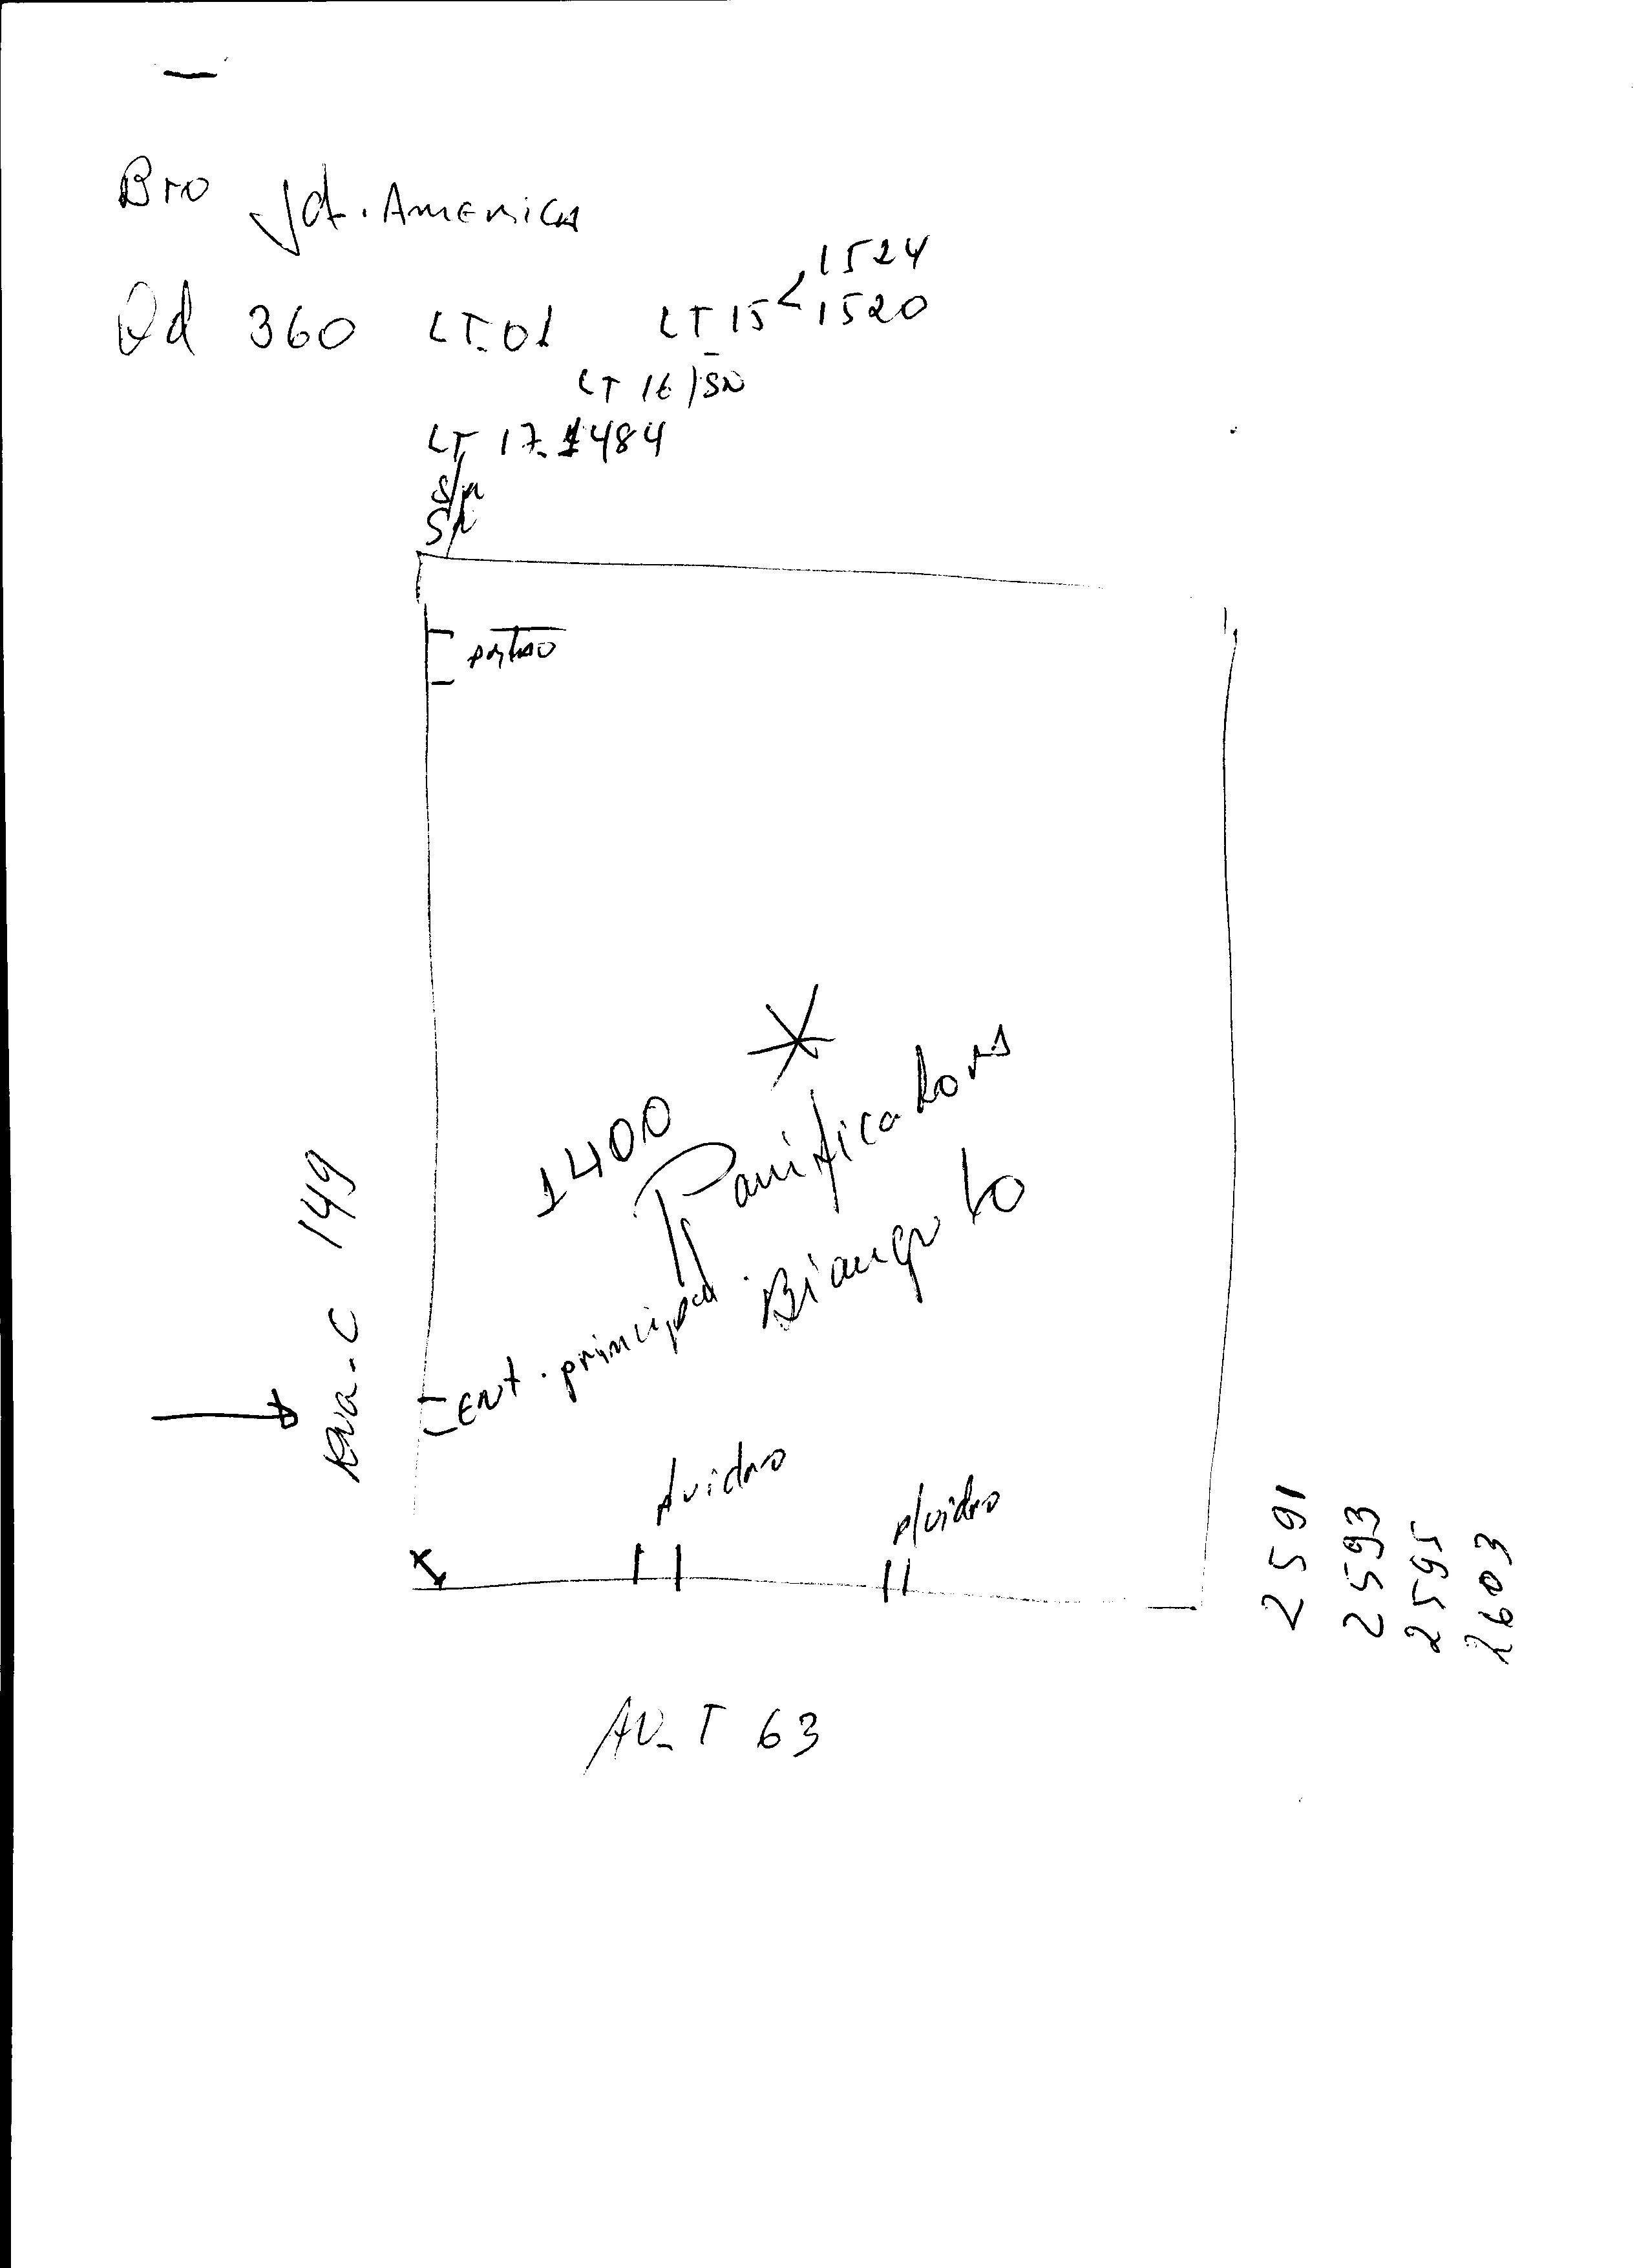 Bro Jd. AMERICA
Qd 360 LT. 01 LT 15 < 1524
1520
LT 16 / SN
LT 17. 1484
S/n
S/n
portao
1400
Panificadora
Biangolo
Rua. C 149
ENt. principal
p/vidro
p/vidro
2591
2593
2595
2603
AV. T 63